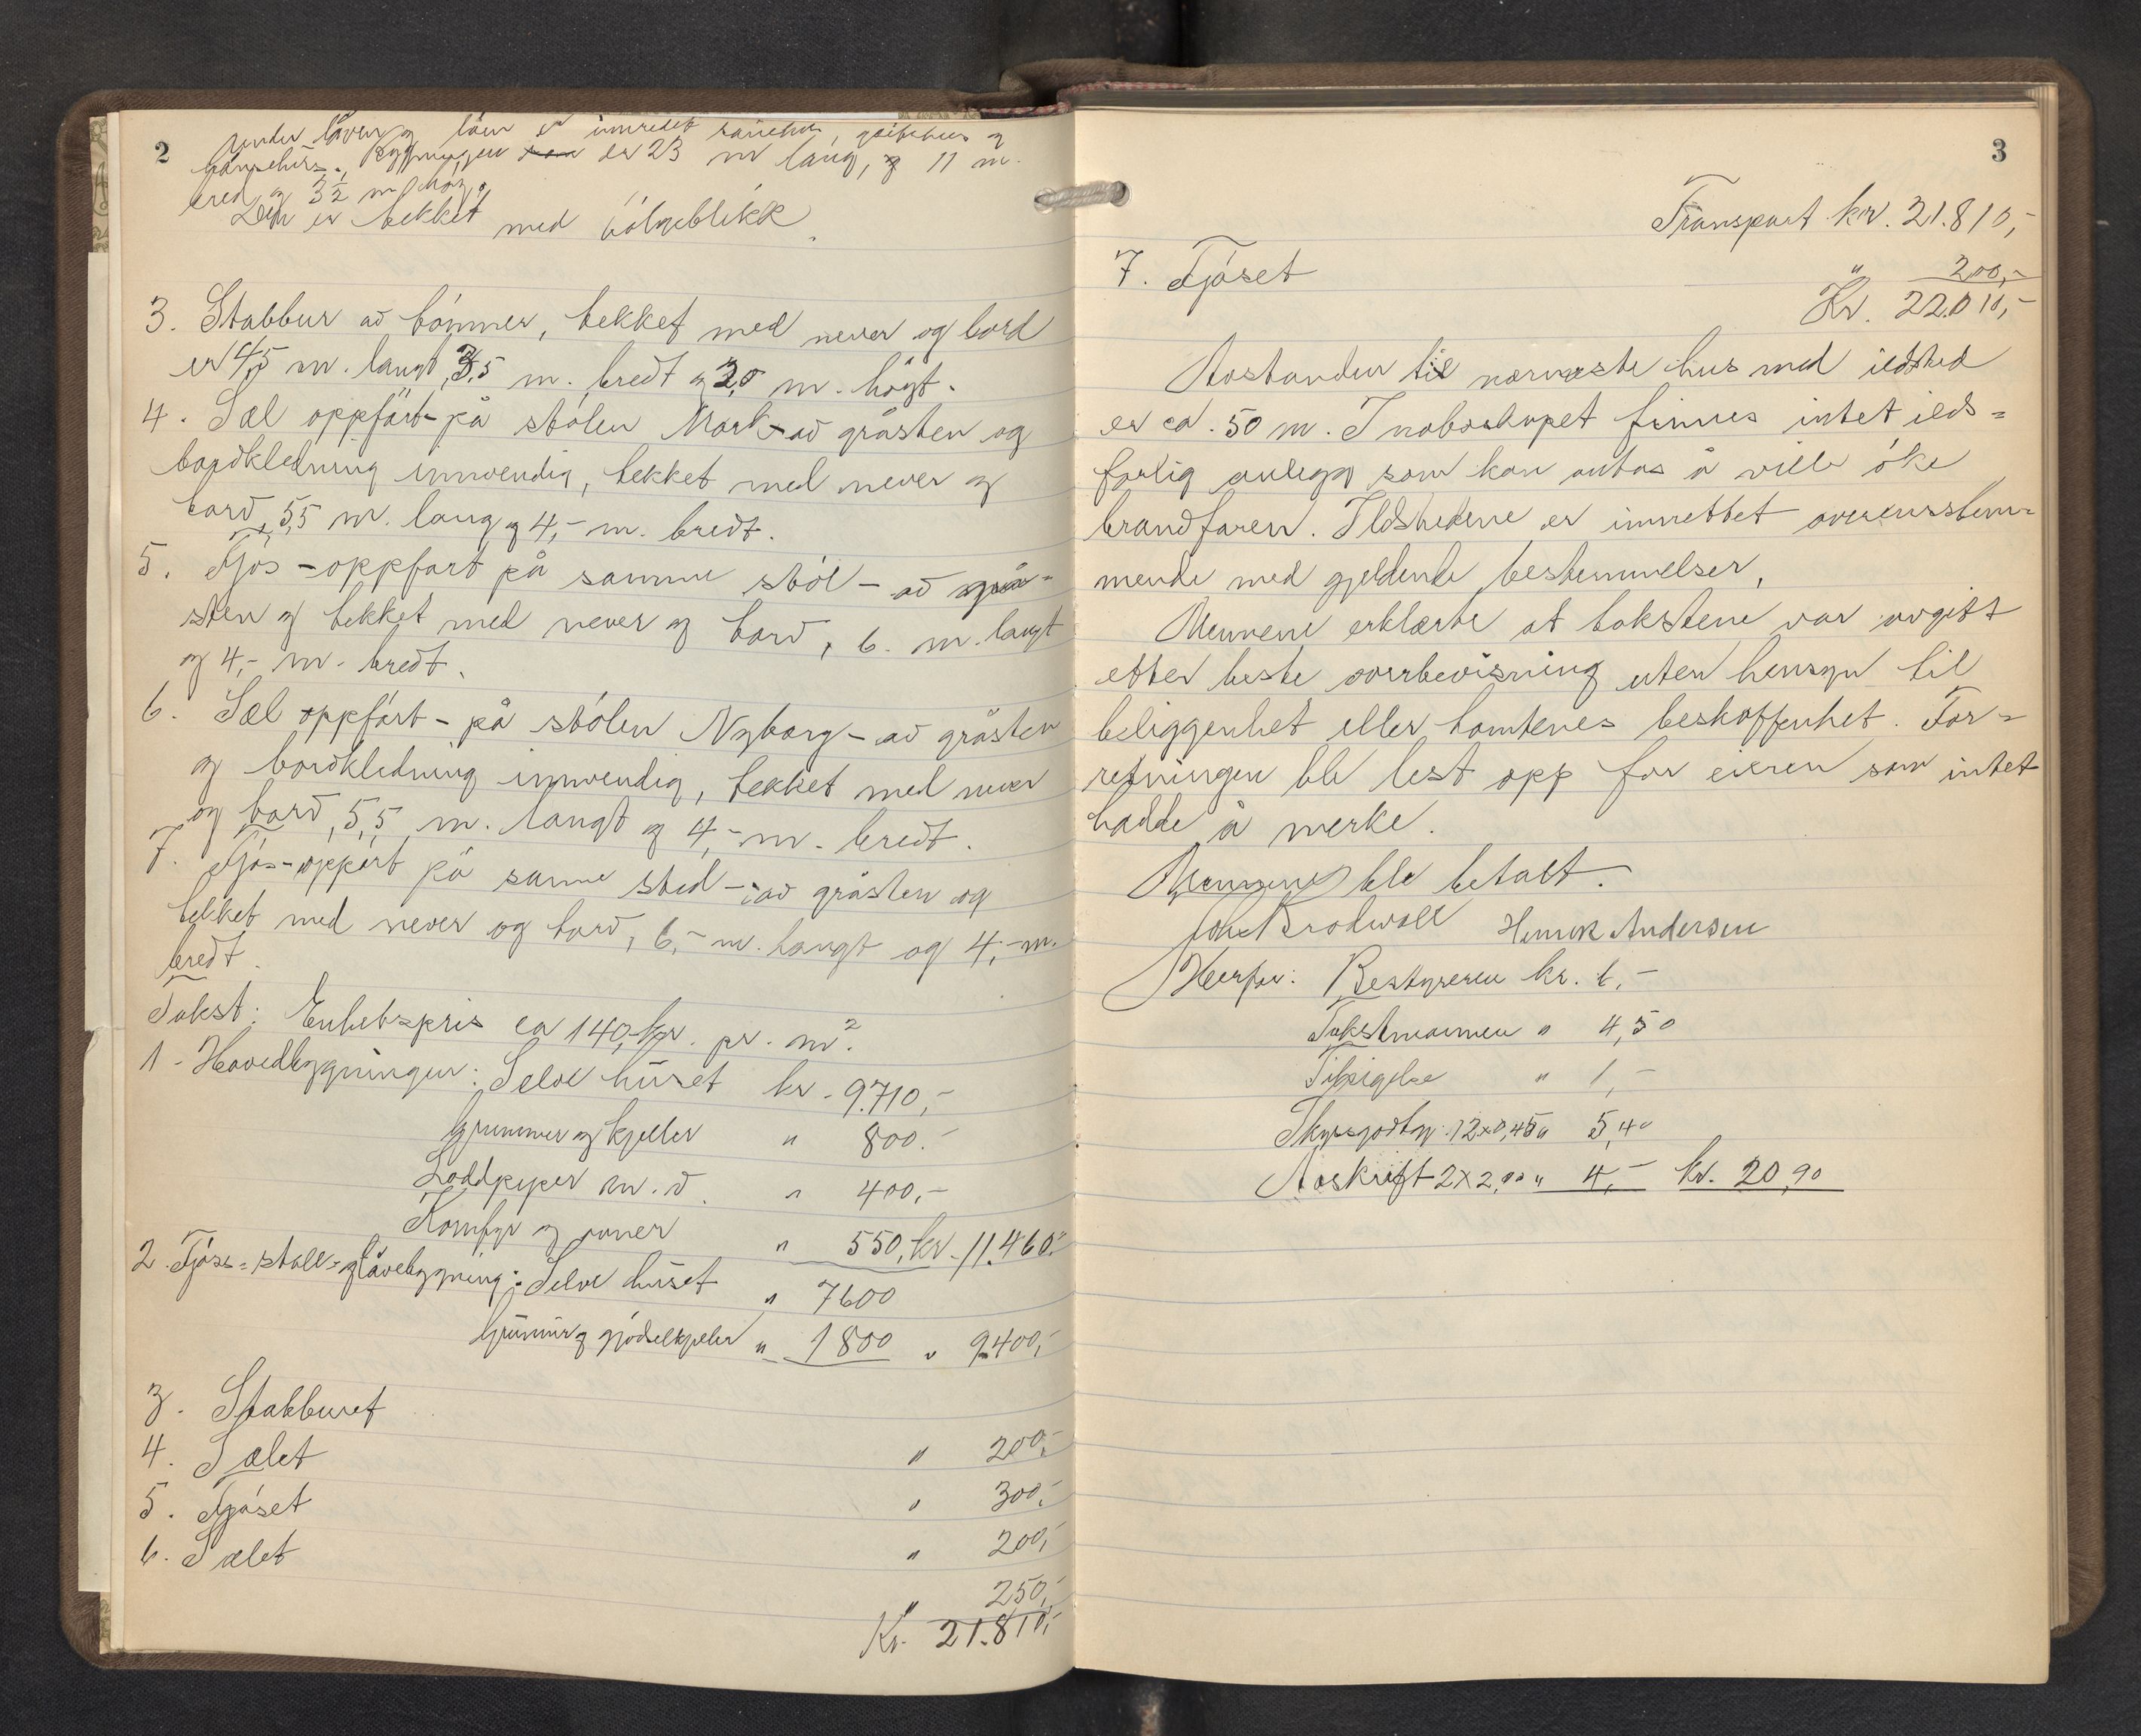 2
Under låven og löen er innredet sauehus, geitehus og
hönsehus. Bygningen er 23 m lang, 11 m.
bred og 3 1/2 m hög.
Den er tekket med bölgeblikk.
3. Stabbur av tömmer, tekket med never og bord
er 4,5 m. langt, 3,5 m. bredt og 2,5 m. högt.
4. Sæl oppfört på stölen Mork - av gråsten og
bordkledning innvendig, tekket med never og
bord, 5,5 m. lang og 4,- m. bredt.
5. Fjös - oppfört på samme stöl - av grå-
sten og tekket med never og bord, 6. m. langt
og 4,- m. bredt.
6. Sæl oppfört - på stölen Nyborg - av gråsten
og bordkledning innvendig, tekket med never
og bord, 5,5 m. langt og 4,- m. bredt.
7. Fjös - oppfört på samme sted - av gråsten og
tekket med never og bord, 6,- m. langt og 4,- m.
bredt.
Takst: Enhetspris ca 140,- kr. pr. m².
1 - Hovedbygningen: Selve huset kr. 9.710,-
Grunnmur og kjeller " 800.-
Loddpiper m.v. " 400,-
Komfyr og ovner " 550, kr. 11.460.-
2. Fjøs- stall- og låvebygning: Selve huset " 7600
Grunnmur og gjödselkjeller " 1800 " 9.400,-
3. Stabburet " 200,-
4. Sælet " 300,-
5. Fjöset " 200,-
6. Sælet " 250,-
Kr. 21.810,-
3
Transport kr. 21.810,-
7. Fjöset " 200,-
Kr. 22.010,-
Avstanden til nærmeste hus med ildsted
er ca. 50 m. I naboskapet finnes intet ilds-
farlig anlegg som kan antas å ville öke
brandfaren. Ildstedene er innrettet overensstem-
mende med gjeldende bestemmelser.
Mennene erklærte at takstene var avgitt
etter beste overbevisning uten hensyn til
beliggenhet eller tomtenes beskaffenhet. For-
retningen ble lest opp for eieren som intet
hadde å merke.
Mennene ble betalt.
Joh Brodwall Henrik Andersen
Herfor: Bestyreren kr. 6,-
Takstmannen " 4,50
Tilsigelse " 1,-
Skyssgodtgj. 12x0,45 " 5,40
Avskrift 2x2,00 " 4,- kr. 20,90